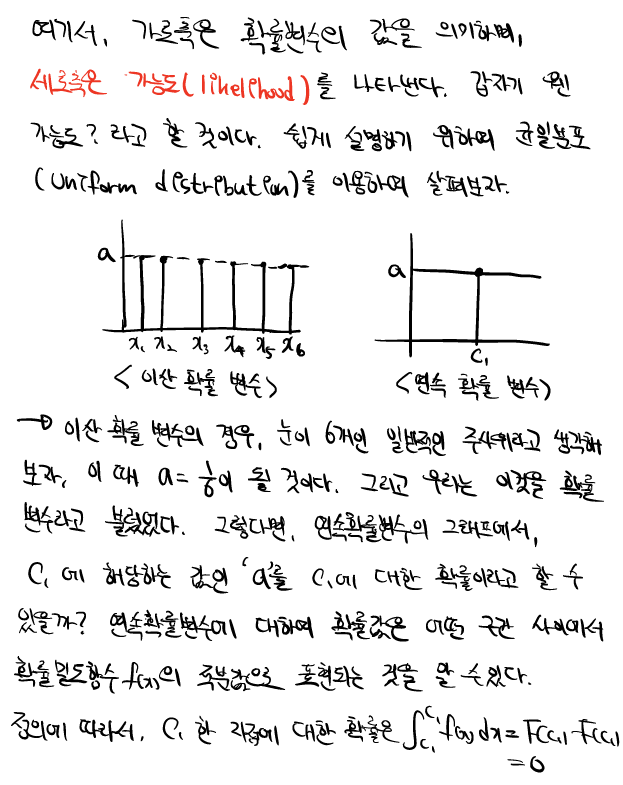 여기서, 가로축은 확률변수의 값을 의미하며,
세로축은 가능도(likelihood)를 나타낸다. 갑자기 웬
가능도? 라고 할 것이다. 쉽게 설명하기 위하여 균일분포
(Uniform distribution)를 이용하여 살펴보자.
a
x₁ x₂ x₃ x₄ x₅ x₆
<이산 확률 변수>
a
C₁
<연속 확률 변수>
→ 이산 확률 변수의 경우, 눈이 6개인 일반적인 주사위라고 생각해
보자, 이 때 a = 1/6이 될 것이다. 그리고 우리는 이것을 확률
변수라고 불렀었다. 그렇다면, 연속확률변수의 그래프에서,
C₁에 해당하는 값인 'a'를 C₁에 대한 확률이라고 할 수
있을까? 연속확률변수에 대하여 확률값은 어떤 구간 사이에서
확률밀도함수 f(x)의 적분값으로 표현되는 것을 알 수 있다.
정의에 따라서, C₁ 한 지점에 대한 확률은 ∫_{C₁}^{C₁} f(x) dx = F(C₁) - F(C₁)
= 0